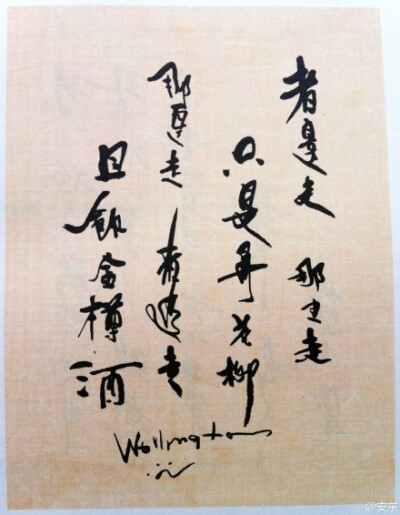 者邊走 那边走
只是尋花柳
那邊走 者邊走
且飲金樽酒
Wellington
@安东